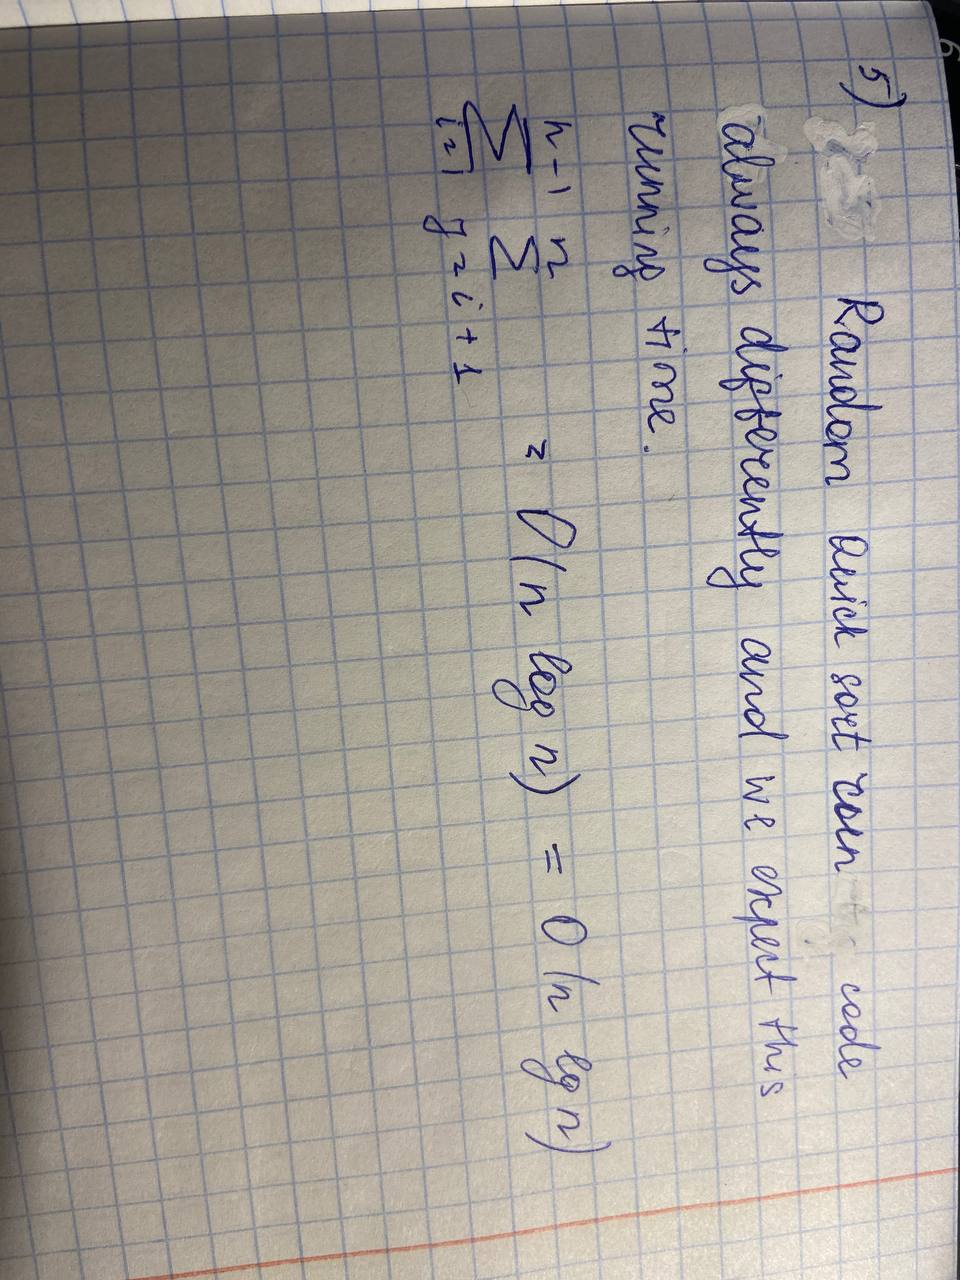 5) Random Quick sort code
always differently and we expect this
running time.
n-1 n
∑ ∑ = O(n log n) = O(n lg n)
i=1 j=i+1